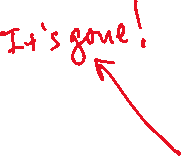 It's gone!